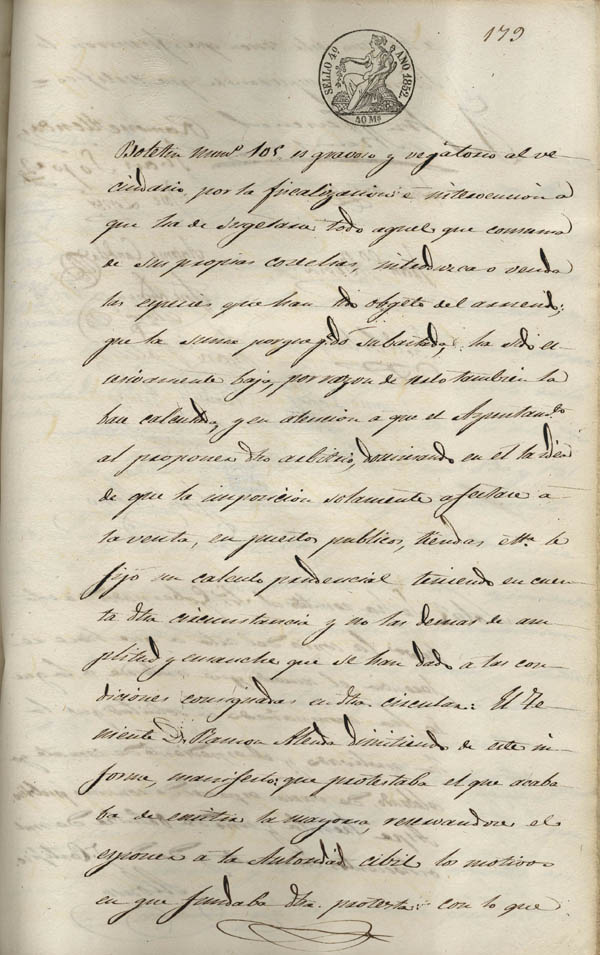 179
SELLO 4º AÑO 1852.
40 Ms
Boletin numº 105 es gravoso y vegatorio al ve-
cindario, por la fiscalizacion é intervencion a
que ha de sugetarse todo aquel que consuma
de sus propias cosechas, introduzca o venda
las especies que han sido obgeto del arriendo;
que la suma porque qdó subastada, ha sido es-
cesivamente baja, por razon de serlo tambien la
base calculada, y en atencion a que el Ayuntamto
al proponer dho arbitrio, dominando en el la idea
de que la imposicion solamente afectase á
la venta, en puestos publicos, tiendas etta le
fijó un calculo prudencial teniendo en cuen-
ta dha circunstancia y no las demas de am-
plitud y ensanche que se han dado a las con-
diciones consignadas en dha circular: El Te-
niente D. Ramon Alenda dimitiendo de este in-
forme, manifestó: que protestaba el que acaba-
ba de emitir la mayoria, reservandose el
esponer a la Autoridad cibil los motivos
en que fundaba dha protesta: con lo que